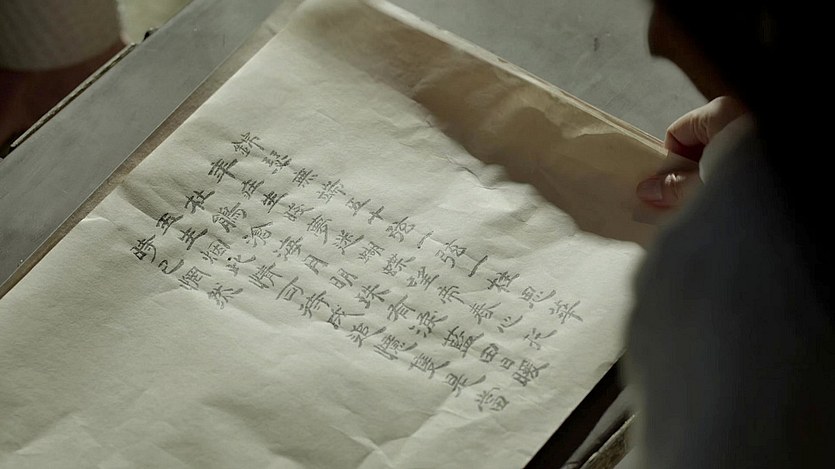 錦瑟無端五十弦一弦一柱思華
年庄生曉夢迷蝴蝶望帝春心托
杜鵑滄海月明珠有淚藍田日暖
玉生烟此情可待成追憶隻是當
時已惘然